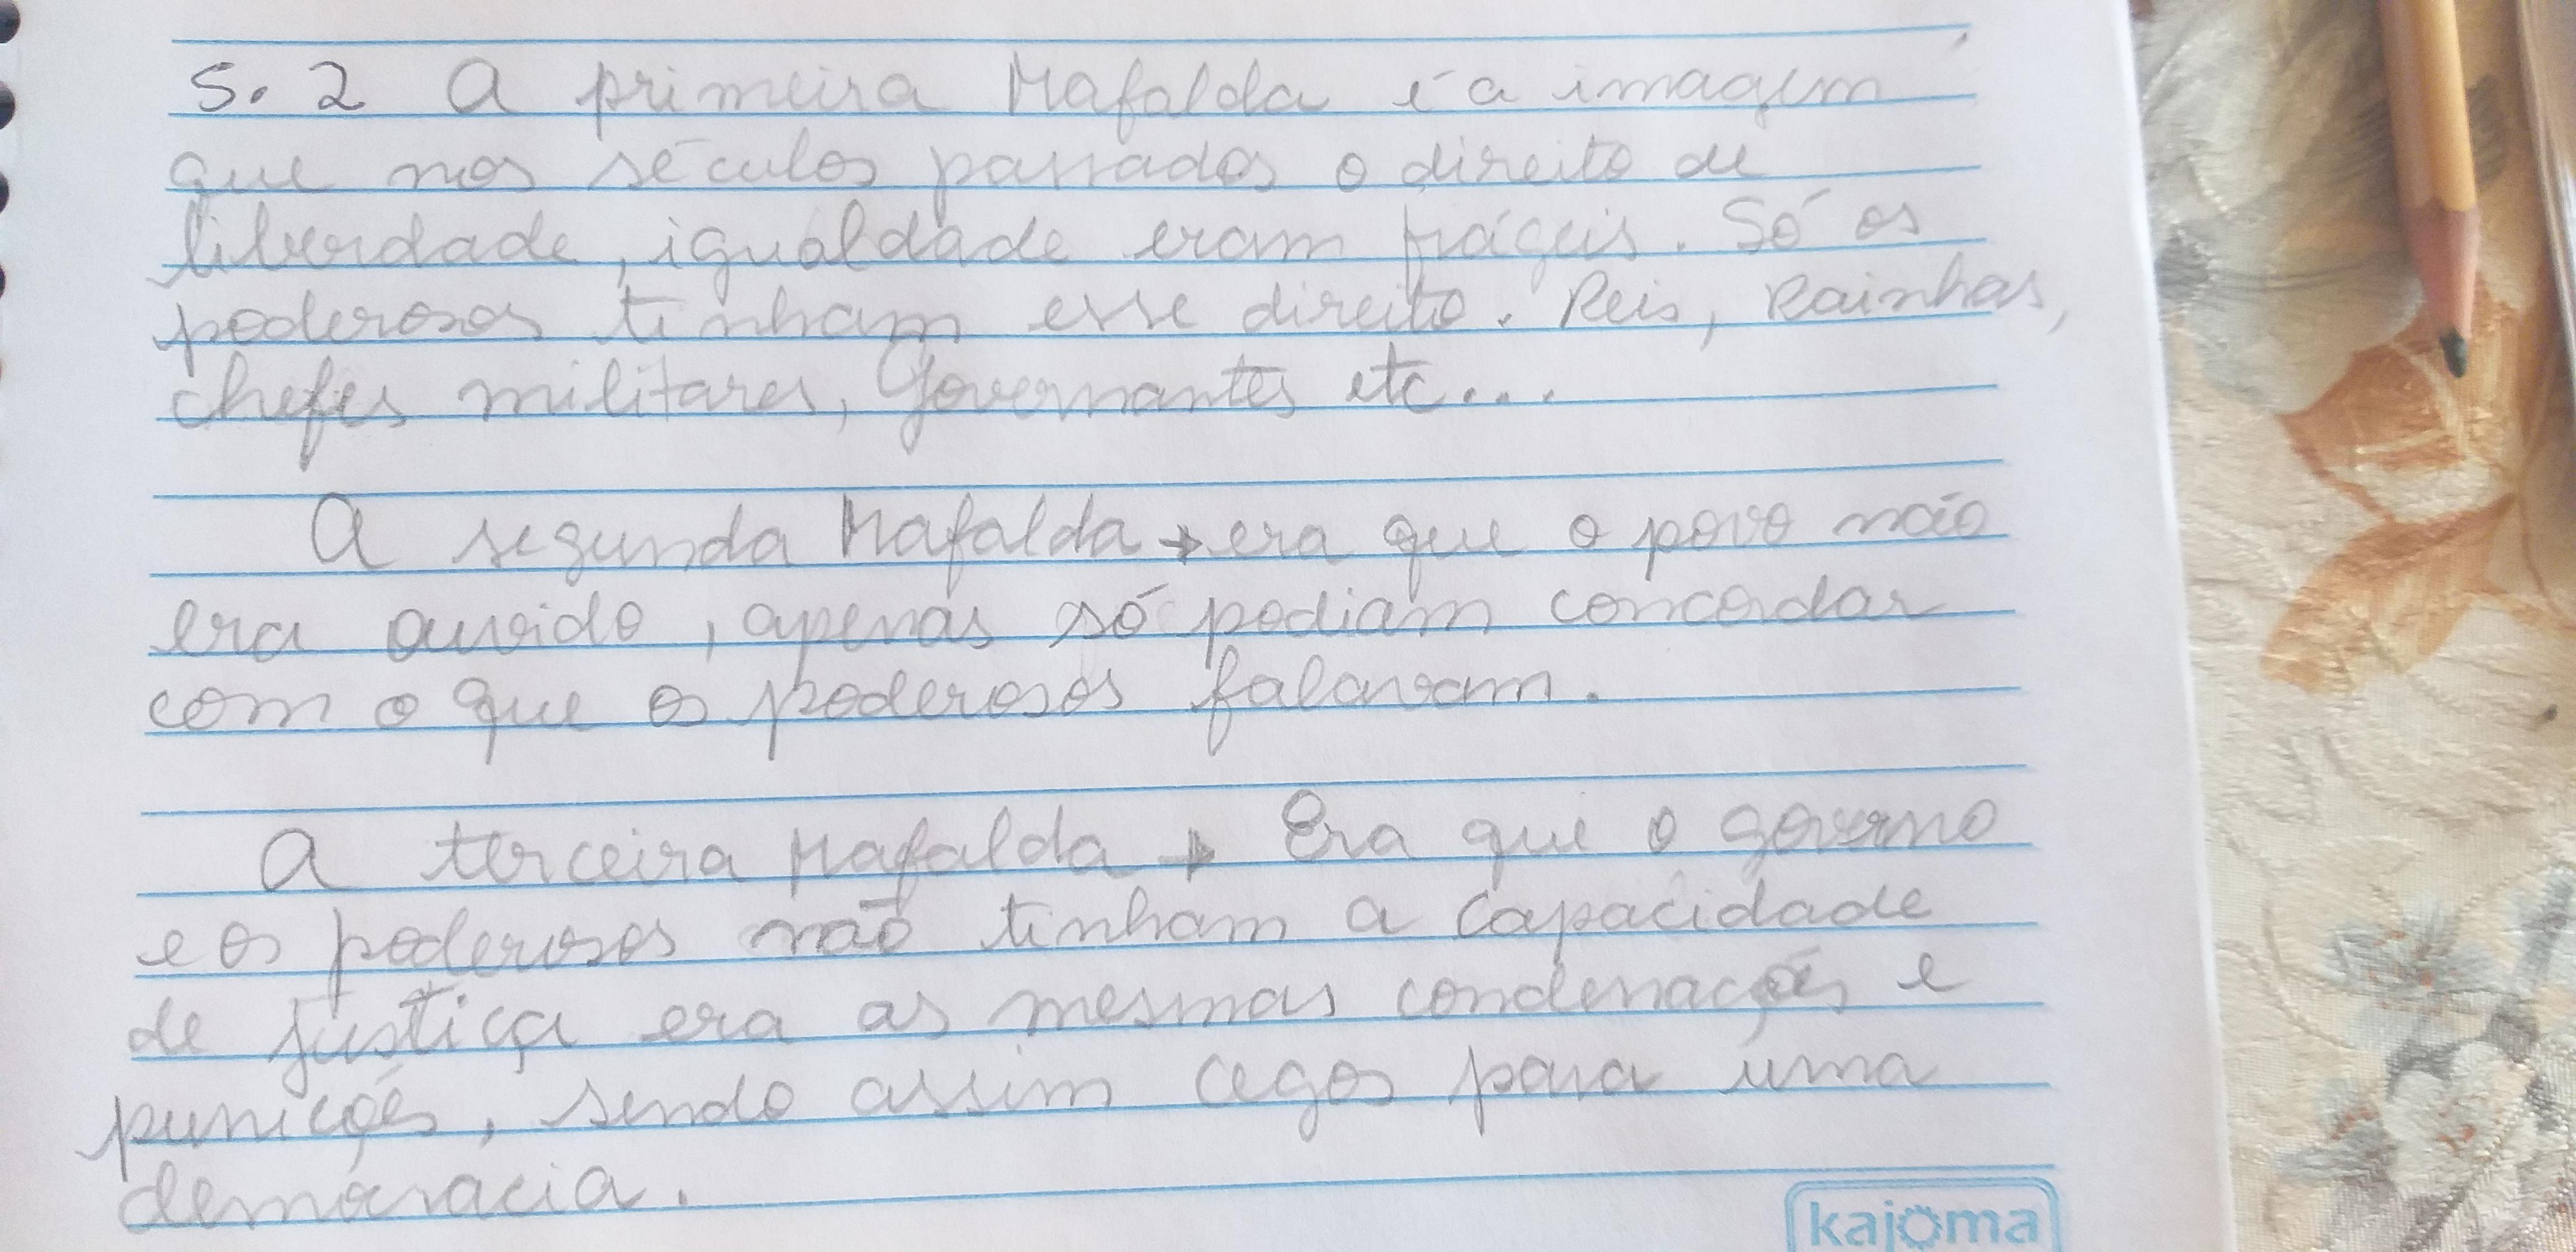 5.2 A primeira Mafalda é a imagem
que nos séculos passados o direito de
liberdade, igualdade eram frágeis. Só os
poderosos tinham esse direito. Reis, Rainhas,
chefes militares, Governantes etc...
A segunda Mafalda → era que o povo não
era ouvido, apenas só podiam concordar
com o que os poderosos falavam.
A terceira Mafalda → Era que o governo
e os poderosos não tinham a capacidade
de justiça era as mesmas condenações e
punições, sendo assim cegos para uma
democracia.
kajoma